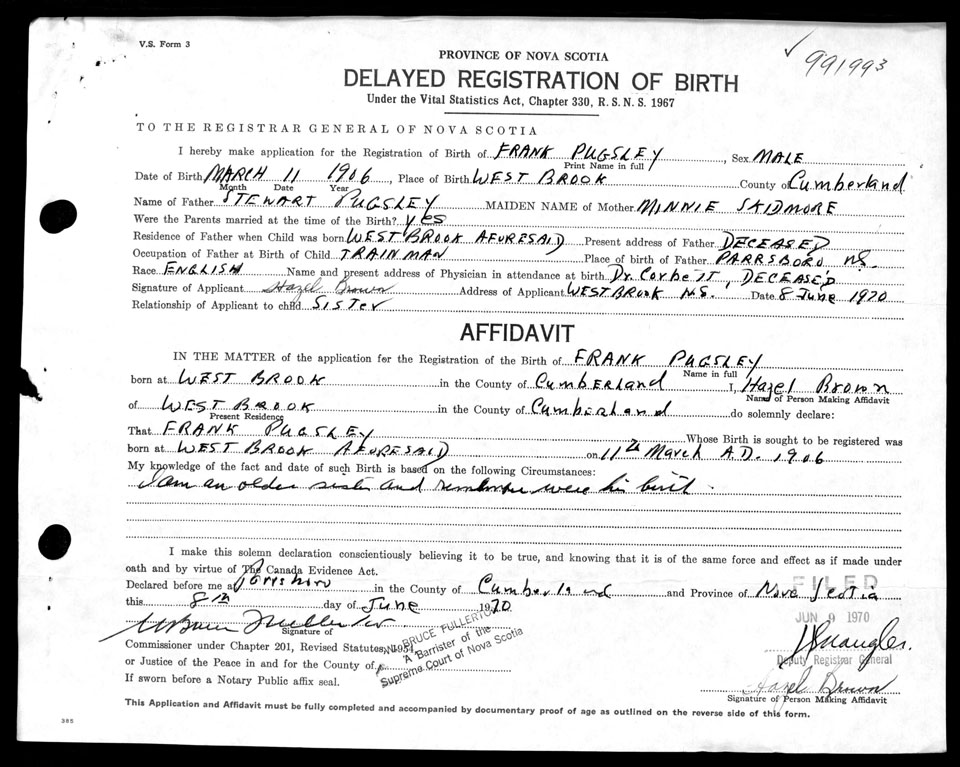 V.S. Form 3
991993
PROVINCE OF NOVA SCOTIA
DELAYED REGISTRATION OF BIRTH
Under the Vital Statistics Act, Chapter 330, R.S.N.S. 1967
TO THE REGISTRAR GENERAL OF NOVA SCOTIA
I hereby make application for the Registration of Birth of FRANK PUGSLEY, Sex MALE
Print Name in full
Date of Birth MARCH 11 1906, Place of Birth WEST BROOK County of Cumberland
Month Date Year
Name of Father STEWART PUGSLEY MAIDEN NAME of Mother MINNIE SKIDMORE
Were the Parents married at the time of the Birth? yes
Residence of Father when Child was born WEST BROOK AFORESAID Present address of Father DECEASED
Occupation of Father at Birth of Child TRAINMAN Place of birth of Father PARRSBORO N.S.
Race ENGLISH Name and present address of Physician in attendance at birth Dr. Corbett, DECEASED
Signature of Applicant Hazel Brown Address of Applicant WEST BROOK N.S. Date 8 June 1970
Relationship of Applicant to child SISTER
AFFIDAVIT
IN THE MATTER of the application for the Registration of the Birth of FRANK PUGSLEY
Name in full
born at WEST BROOK in the County of Cumberland I, Hazel Brown
Name of Person Making Affidavit
of WEST BROOK in the County of Cumberland do solemnly declare:
Present Residence
That FRANK PUGSLEY Whose Birth is sought to be registered was
born at WEST BROOK AFORESAID on 11th March A.D. 1906
My knowledge of the fact and date of such Birth is based on the following Circumstances:
I am an older sister and remember were his birth
I make this solemn declaration conscientiously believing it to be true, and knowing that it is of the same force and effect as if made under
oath and by virtue of The Canada Evidence Act.
Declared before me at Parrsboro in the County of Cumberland and Province of Nova Scotia
this 8th day of June 1970
FILED
JUN 9 1970
Signature of
Commissioner under Chapter 201, Revised Statutes, 1954,
or Justice of the Peace in and for the County of
BRUCE FULLERTON
A Barrister of the
Supreme Court of Nova Scotia
Deputy Registrar General
If sworn before a Notary Public affix seal.
Hazel Brown
Signature of Person Making Affidavit
This Application and Affidavit must be fully completed and accompanied by documentary proof of age as outlined on the reverse side of this form.
385